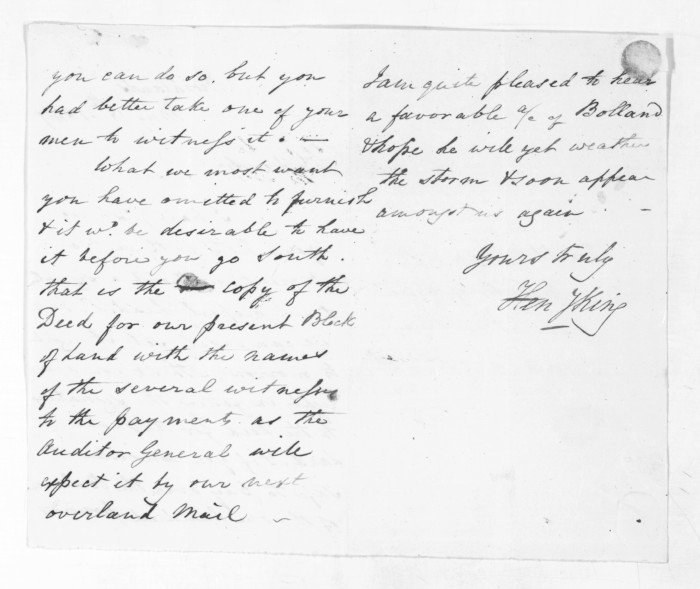 you can do so. but you
had better take one of your
men to witness it. —
What we most want
you have omitted to furnish
& it wd. be desirable to have
it before you go South.
that is the copy of the
Deed for our present Block
of Land with the names
of the several witnesses
to the payments as the
Auditor General will
expect it by our next
overland Mail —
I am quite pleased to hear
a favorable a/c of Bolland
& hope he will yet weather
the storm & soon appear
amongst us again —
Yours truly
Hen King